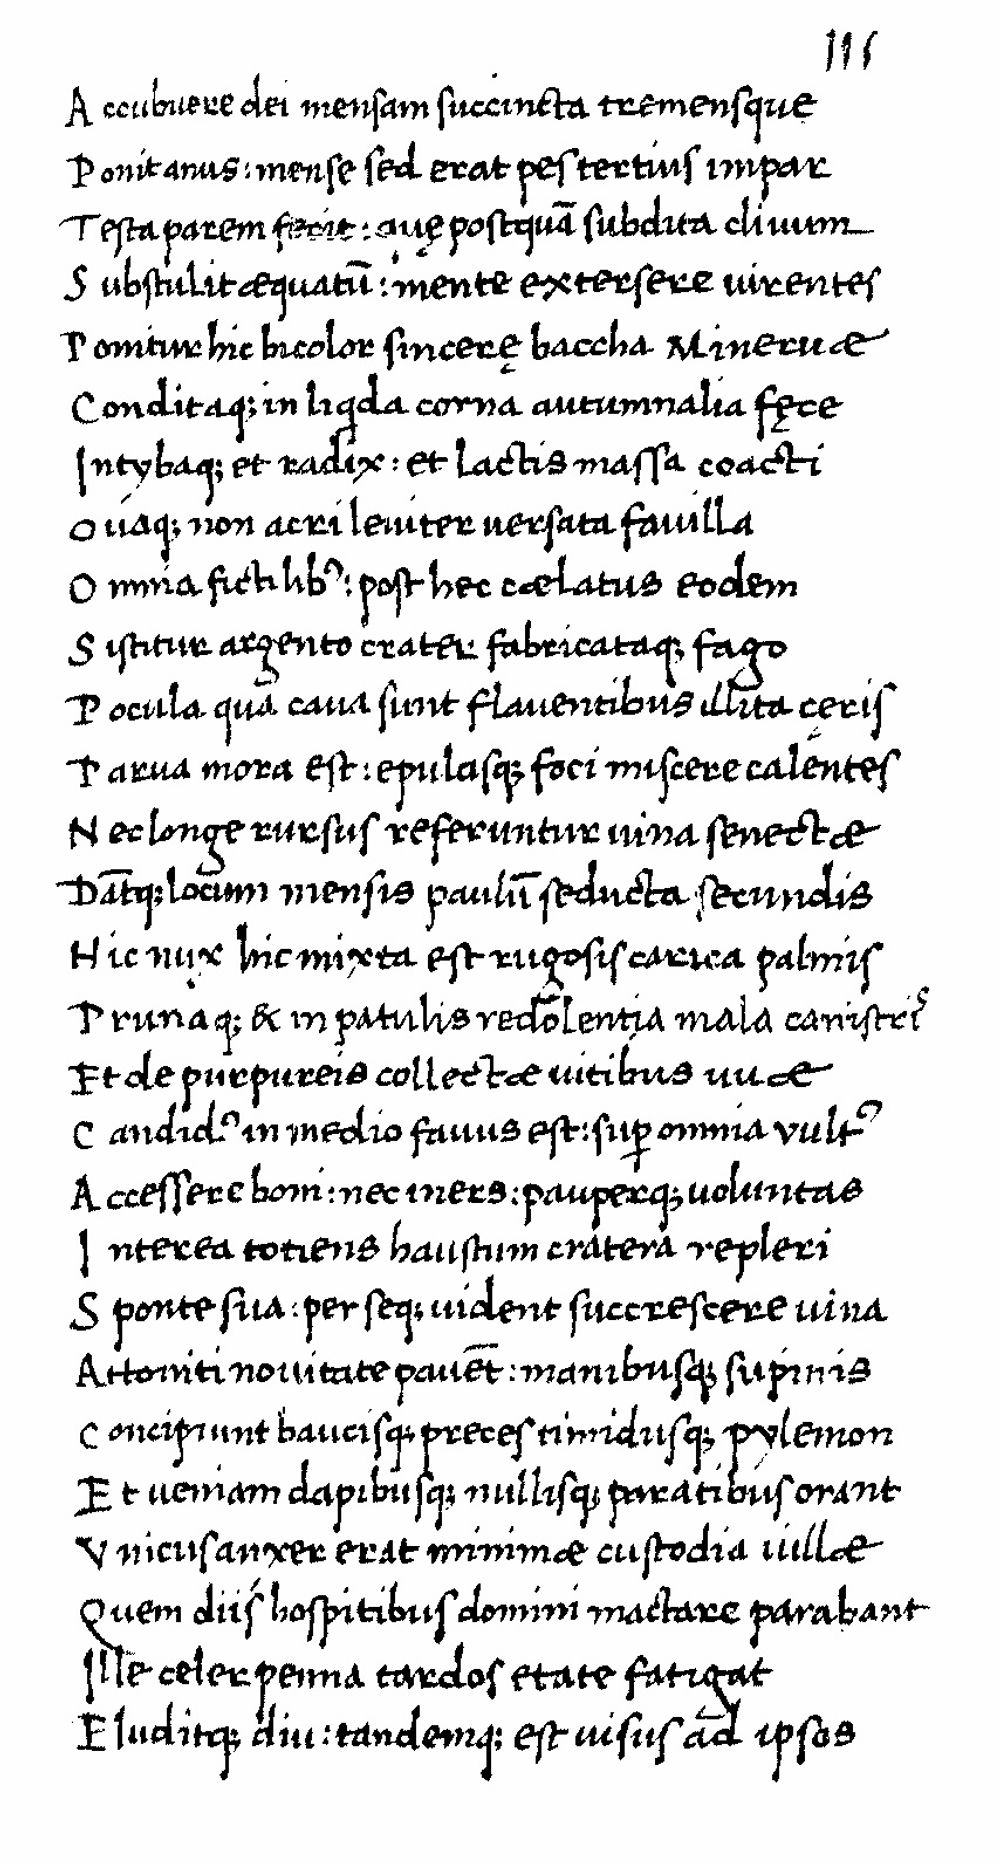 115
Accubuere dei mensam succincta tremensque
Ponit anus: mense sed erat pes tertius impar
Testa parem fecit: quę postquā subdita cliuum
Substulit æquatū: mente extersere uirentes
Ponitur hic bicolor sincerę baccha Mineruæ
Conditaq; in liqda corna autumnalia fęce
Intybaq; et radix: et lactis massa coacti
Ouaq; non acri leuiter uersata fauilla
Omnia fictilibꝰ: post hec cælatus eodem
Sistitur argento crater fabricataq; fago
Pocula qua caua sunt flauentibus illita cęris
Parua mora est: epulasq; foci miscere calentes
Nec longe rursus referuntur uina senectæ
Dātq; locum mensis paulū seducta secundis
Hic nux hic mixta est rugosis carica palmis
Prunaq; & in patulis redolentia mala canistris
Et de purpureis collectæ uitibus uuæ
Candidꝰ in medio fauus est: suꝑ omnia vultꝰ
Accessere boni: nec iners: pauperq; uoluntas
Interea totiens haustum cratera repleri
Sponte sua: per seq; uident succrescere uina
Attoniti nouitate pauēt: manibusq; supinis
Concipiunt baucisq; preces timidusq; pylemon
Et ueniam dapibusq; nullisq; paratibus orant
Vnicus anxer erat minimæ custodia uillæ
Quem diis hospitibus domini mactare parabant
Ille celer penna tardos etate fatigat
Eluditq; diu: tandemq; est uisus ad ipsos